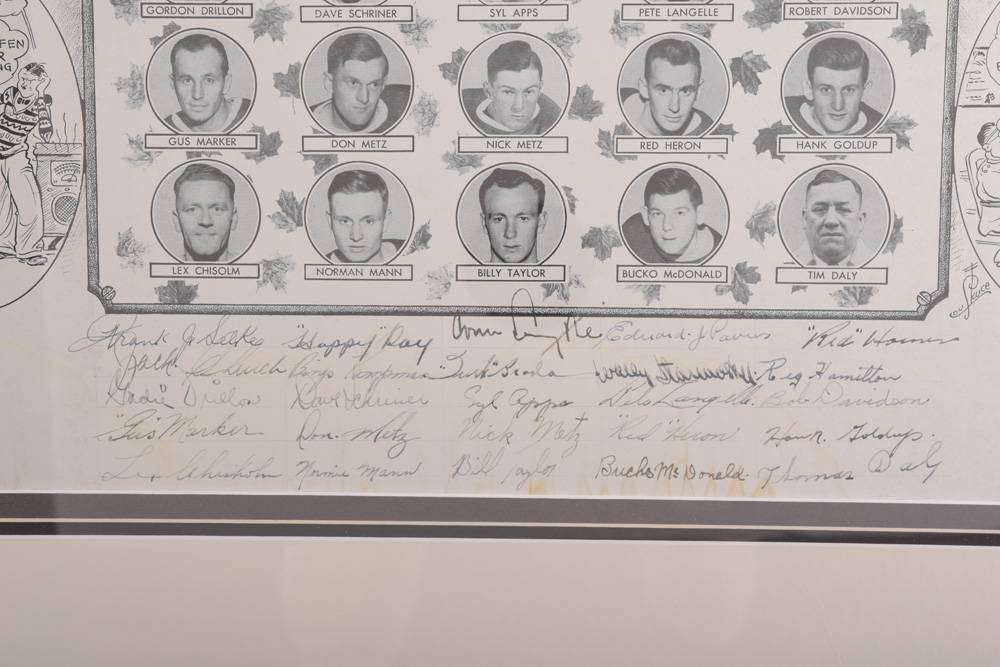 GORDON DRILLON DAVE SCHRINER SYL APPS PETE LANGELLE ROBERT DAVIDSON
FEN
R
NG
GUS MARKER DON METZ NICK METZ RED HERON HANK GOLDUP
LEX CHISOLM NORMAN MANN BILLY TAYLOR BUCKO McDONALD TIM DALY
Frank J. Selke "Happy" Day Conn Smythe Edward J Powers "Red" Horner
Jack Church Bingo Kampman "Turk" Broda Wally Stanowski Reg Hamilton
"Gordie" Drillon Dave Schriner Syl Apps Pete Langelle Bob Davidson
"Gus" Marker Don. Metz Nick Metz "Red" Heron Hank Goldup.
Lex Chisholm Normie Mann Bill Taylor Bucko McDonald. Thomas Daly